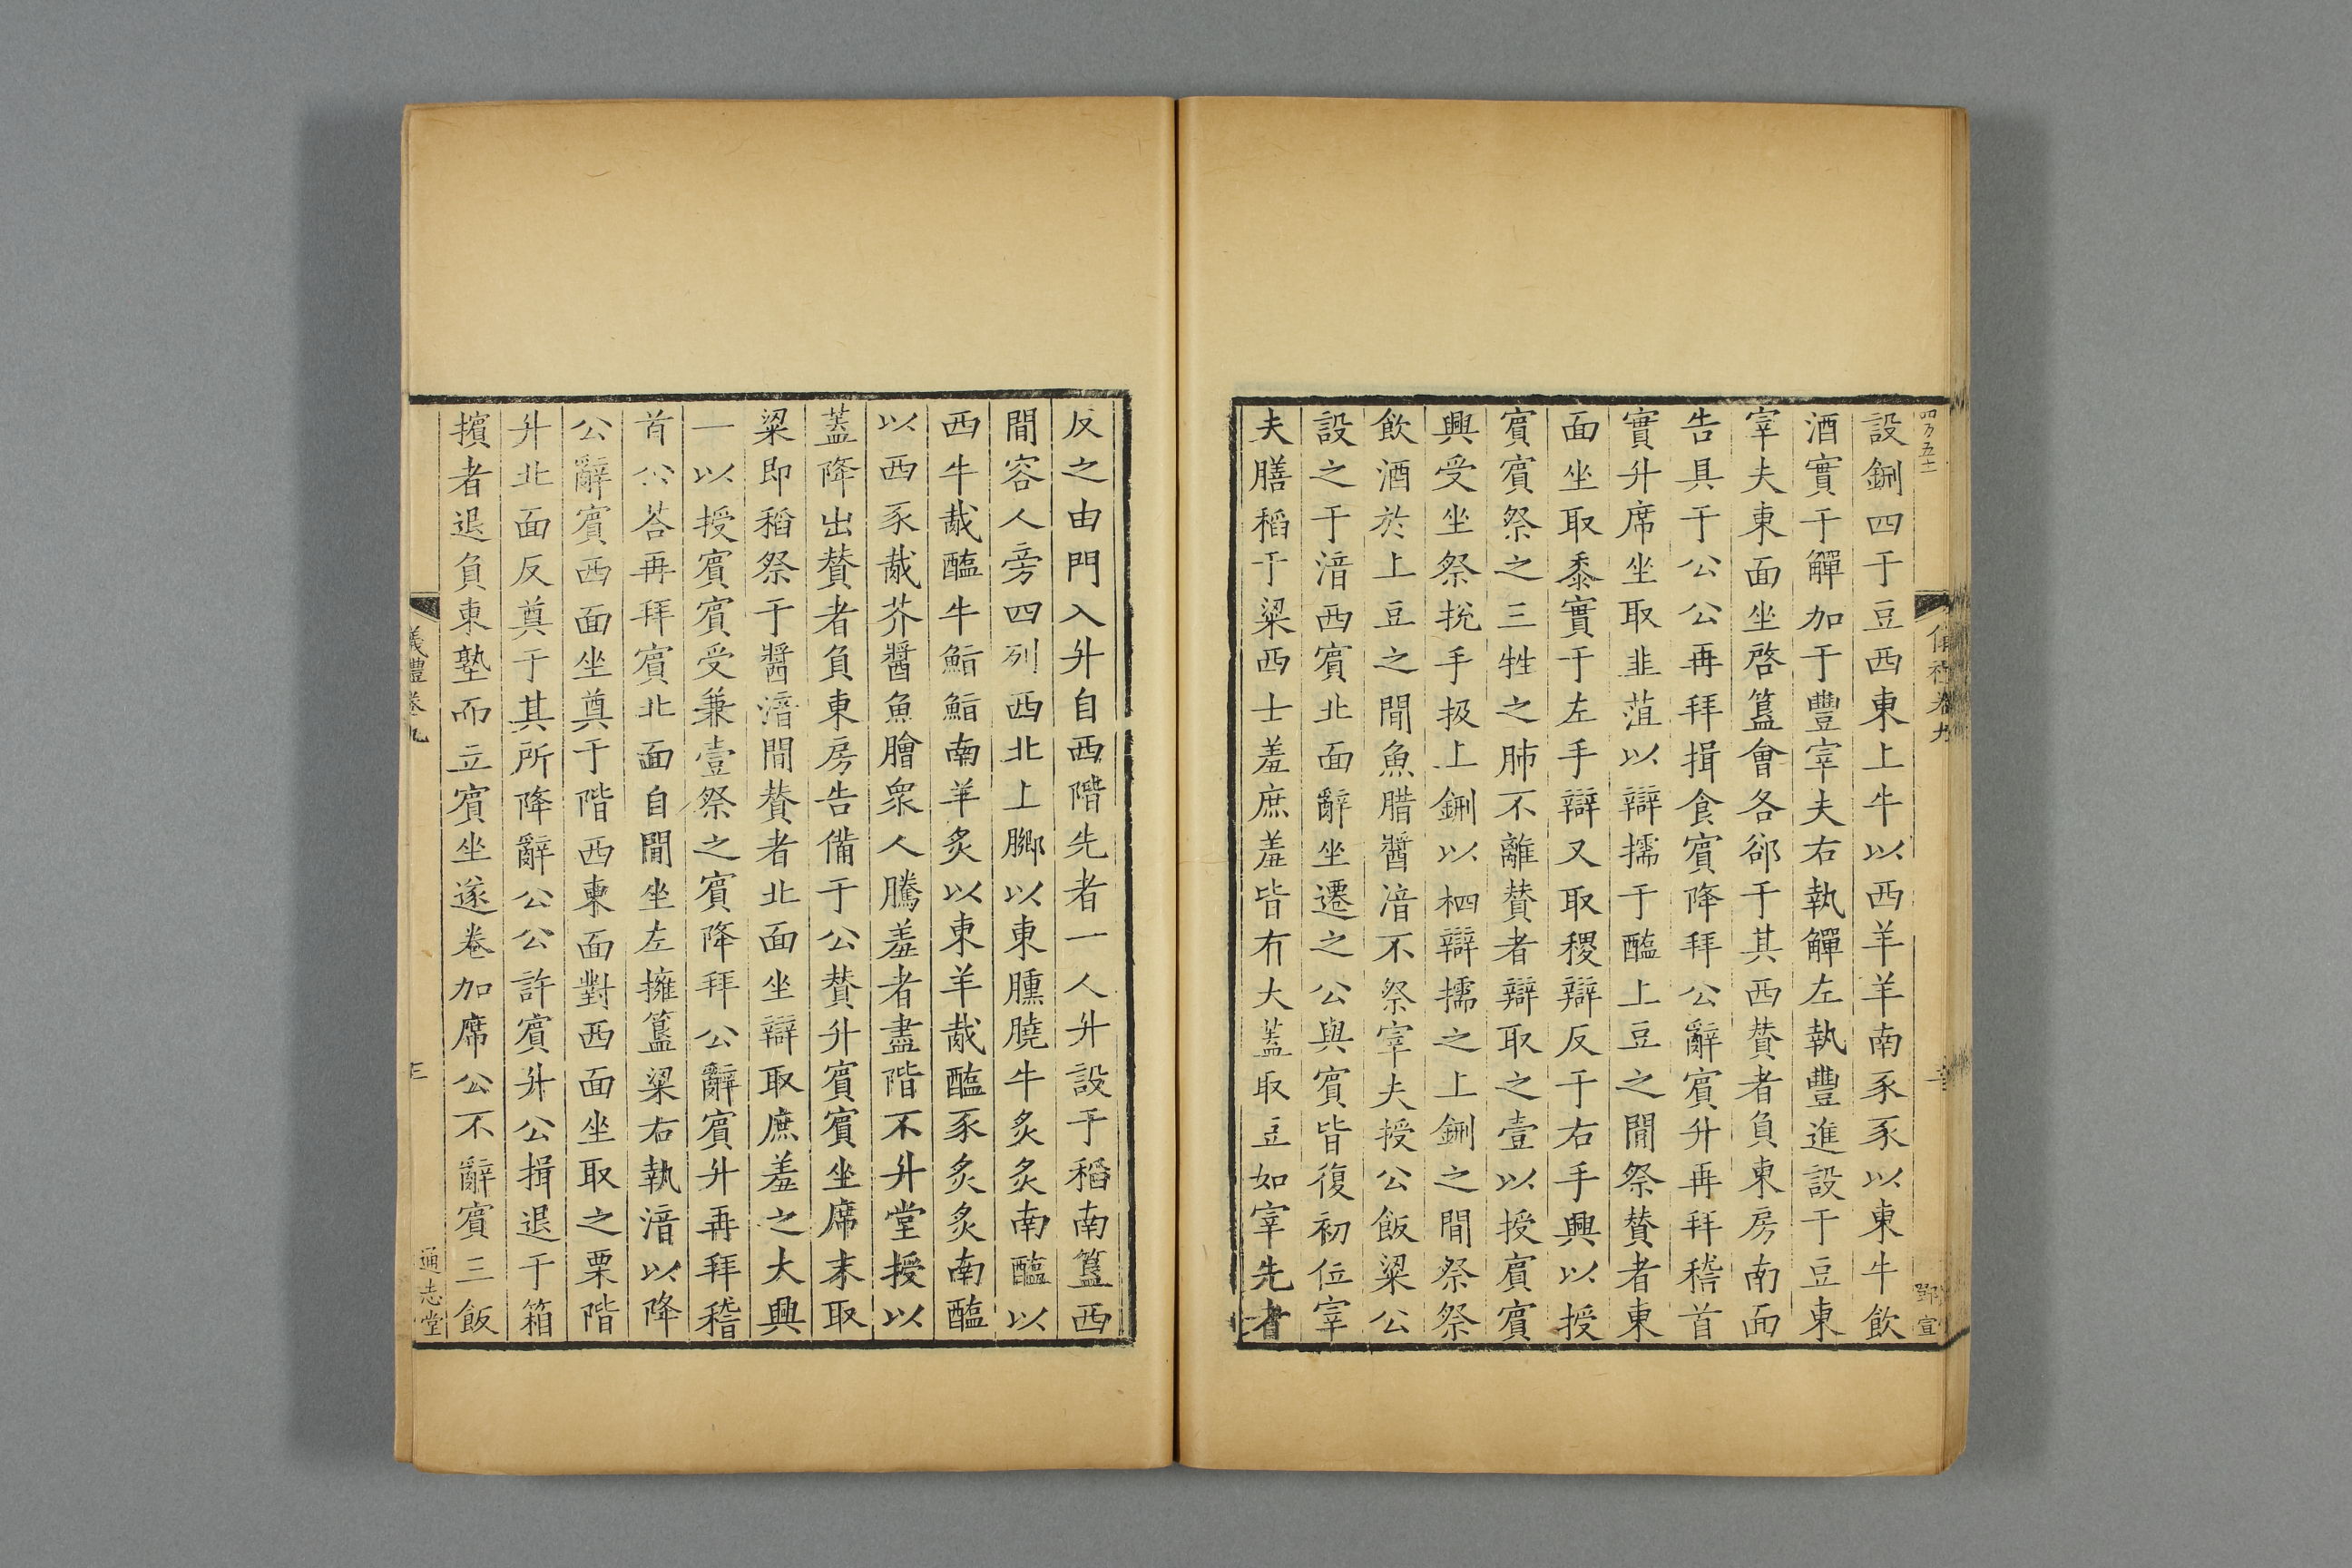 四百五十
儀禮卷九
鄧宣
設鉶四于豆西東上牛以西羊羊南豕豕以東牛飲
酒實于觶加于豐宰夫右執觶左執豐進設于豆東
宰夫東面坐啓簋會各郤于其西贊者負東房南面
告具于公公再拜揖食賓降拜公辭賓升再拜稽首
賓升席坐取韭菹以辯擩于醢上豆之間祭贊者東
面坐取黍實于左手辯又取稷辯反于右手興以授
賓賓祭之三牲之肺不離贊者辯取之壹以授賓賓
興受坐祭挩手扱上鉶以柶辯擩之上鉶之間祭祭
飲酒於上豆之間魚腊醬湆不祭宰夫授公飯粱公
設之于湆西賓北面辭坐遷之公與賓皆復初位宰
夫膳稻于粱西士羞庶羞皆有大蓋取豆如宰先者
反之由門入升自西階先者一人升設于稻南簋西
間容人旁四列西北上膷以東臐膮牛炙炙南醢以
西牛胾醢牛鮨鮨南羊炙以東羊胾醢豕炙炙南醢
以西豕胾芥醬魚膾眾人騰羞者盡階不升堂授以
蓋降出贊者負東房告備于公贊升賓賓坐席末取
粱即稻祭于醬湆間贊者北面坐辯取庶羞之大興
一以授賓賓受兼壹祭之賓降拜公辭賓升再拜稽
首公荅再拜賓北面自間坐左擁簠粱右執湆以降
公辭賓西面坐奠于階西東面對西面坐取之栗階
升北面反奠于其所降辭公公許賓升公揖退于箱
擯者退負東塾而立賓坐遂卷加席公不辭賓三飯
儀禮卷九
三
通志堂